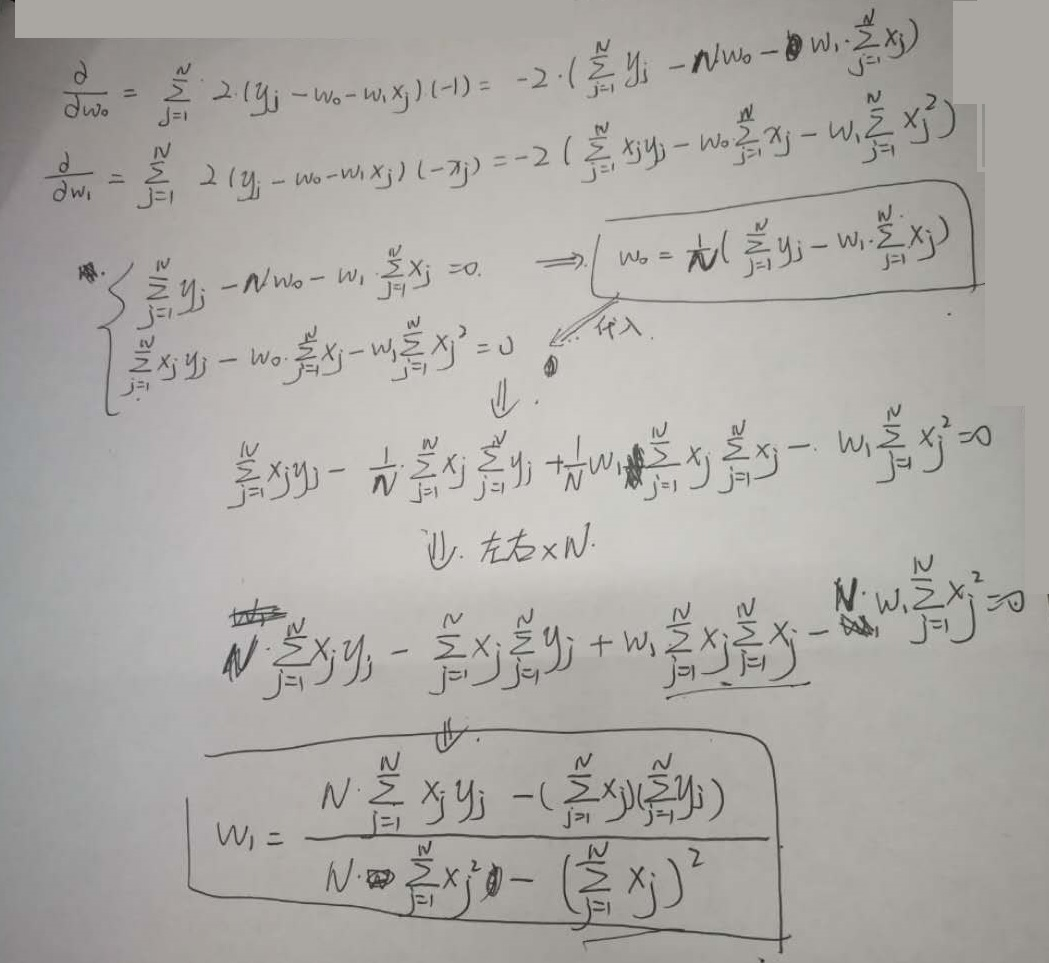 ∂/∂w₀ = Σ_{j=1}^{N} 2·(y_j − w₀ − w₁x_j)(−1) = −2·(Σ_{j=1}^{N} y_j − Nw₀ − w₁·Σ_{j=1}^{N} x_j)
∂/∂w₁ = Σ_{j=1}^{N} 2(y_j − w₀ − w₁x_j)(−x_j) = −2(Σ_{j=1}^{N} x_j y_j − w₀·Σ_{j=1}^{N} x_j − w₁Σ_{j=1}^{N} x_j²)
{ Σ_{j=1}^{N} y_j − Nw₀ − w₁·Σ_{j=1}^{N} x_j = 0. ⟹ w₀ = 1/N (Σ_{j=1}^{N} y_j − w₁·Σ_{j=1}^{N} x_j)
Σ_{j=1}^{N} x_j y_j − w₀·Σ_{j=1}^{N} x_j − w₁Σ_{j=1}^{N} x_j² = 0 代入.
⇓.
Σ_{j=1}^{N} x_j y_j − 1/N·Σ_{j=1}^{N} x_j Σ_{j=1}^{N} y_j + 1/N w₁ Σ_{j=1}^{N} x_j Σ_{j=1}^{N} x_j − w₁Σ_{j=1}^{N} x_j² = 0
⇓. 左右×N.
N·Σ_{j=1}^{N} x_j y_j − Σ_{j=1}^{N} x_j Σ_{j=1}^{N} y_j + w₁Σ_{j=1}^{N} x_j Σ_{j=1}^{N} x_j − N·w₁Σ_{j=1}^{N} x_j² = 0
⇓.
w₁ = (N·Σ_{j=1}^{N} x_j y_j − (Σ_{j=1}^{N} x_j)(Σ_{j=1}^{N} y_j)) / (N·Σ_{j=1}^{N} x_j² − (Σ_{j=1}^{N} x_j)²)